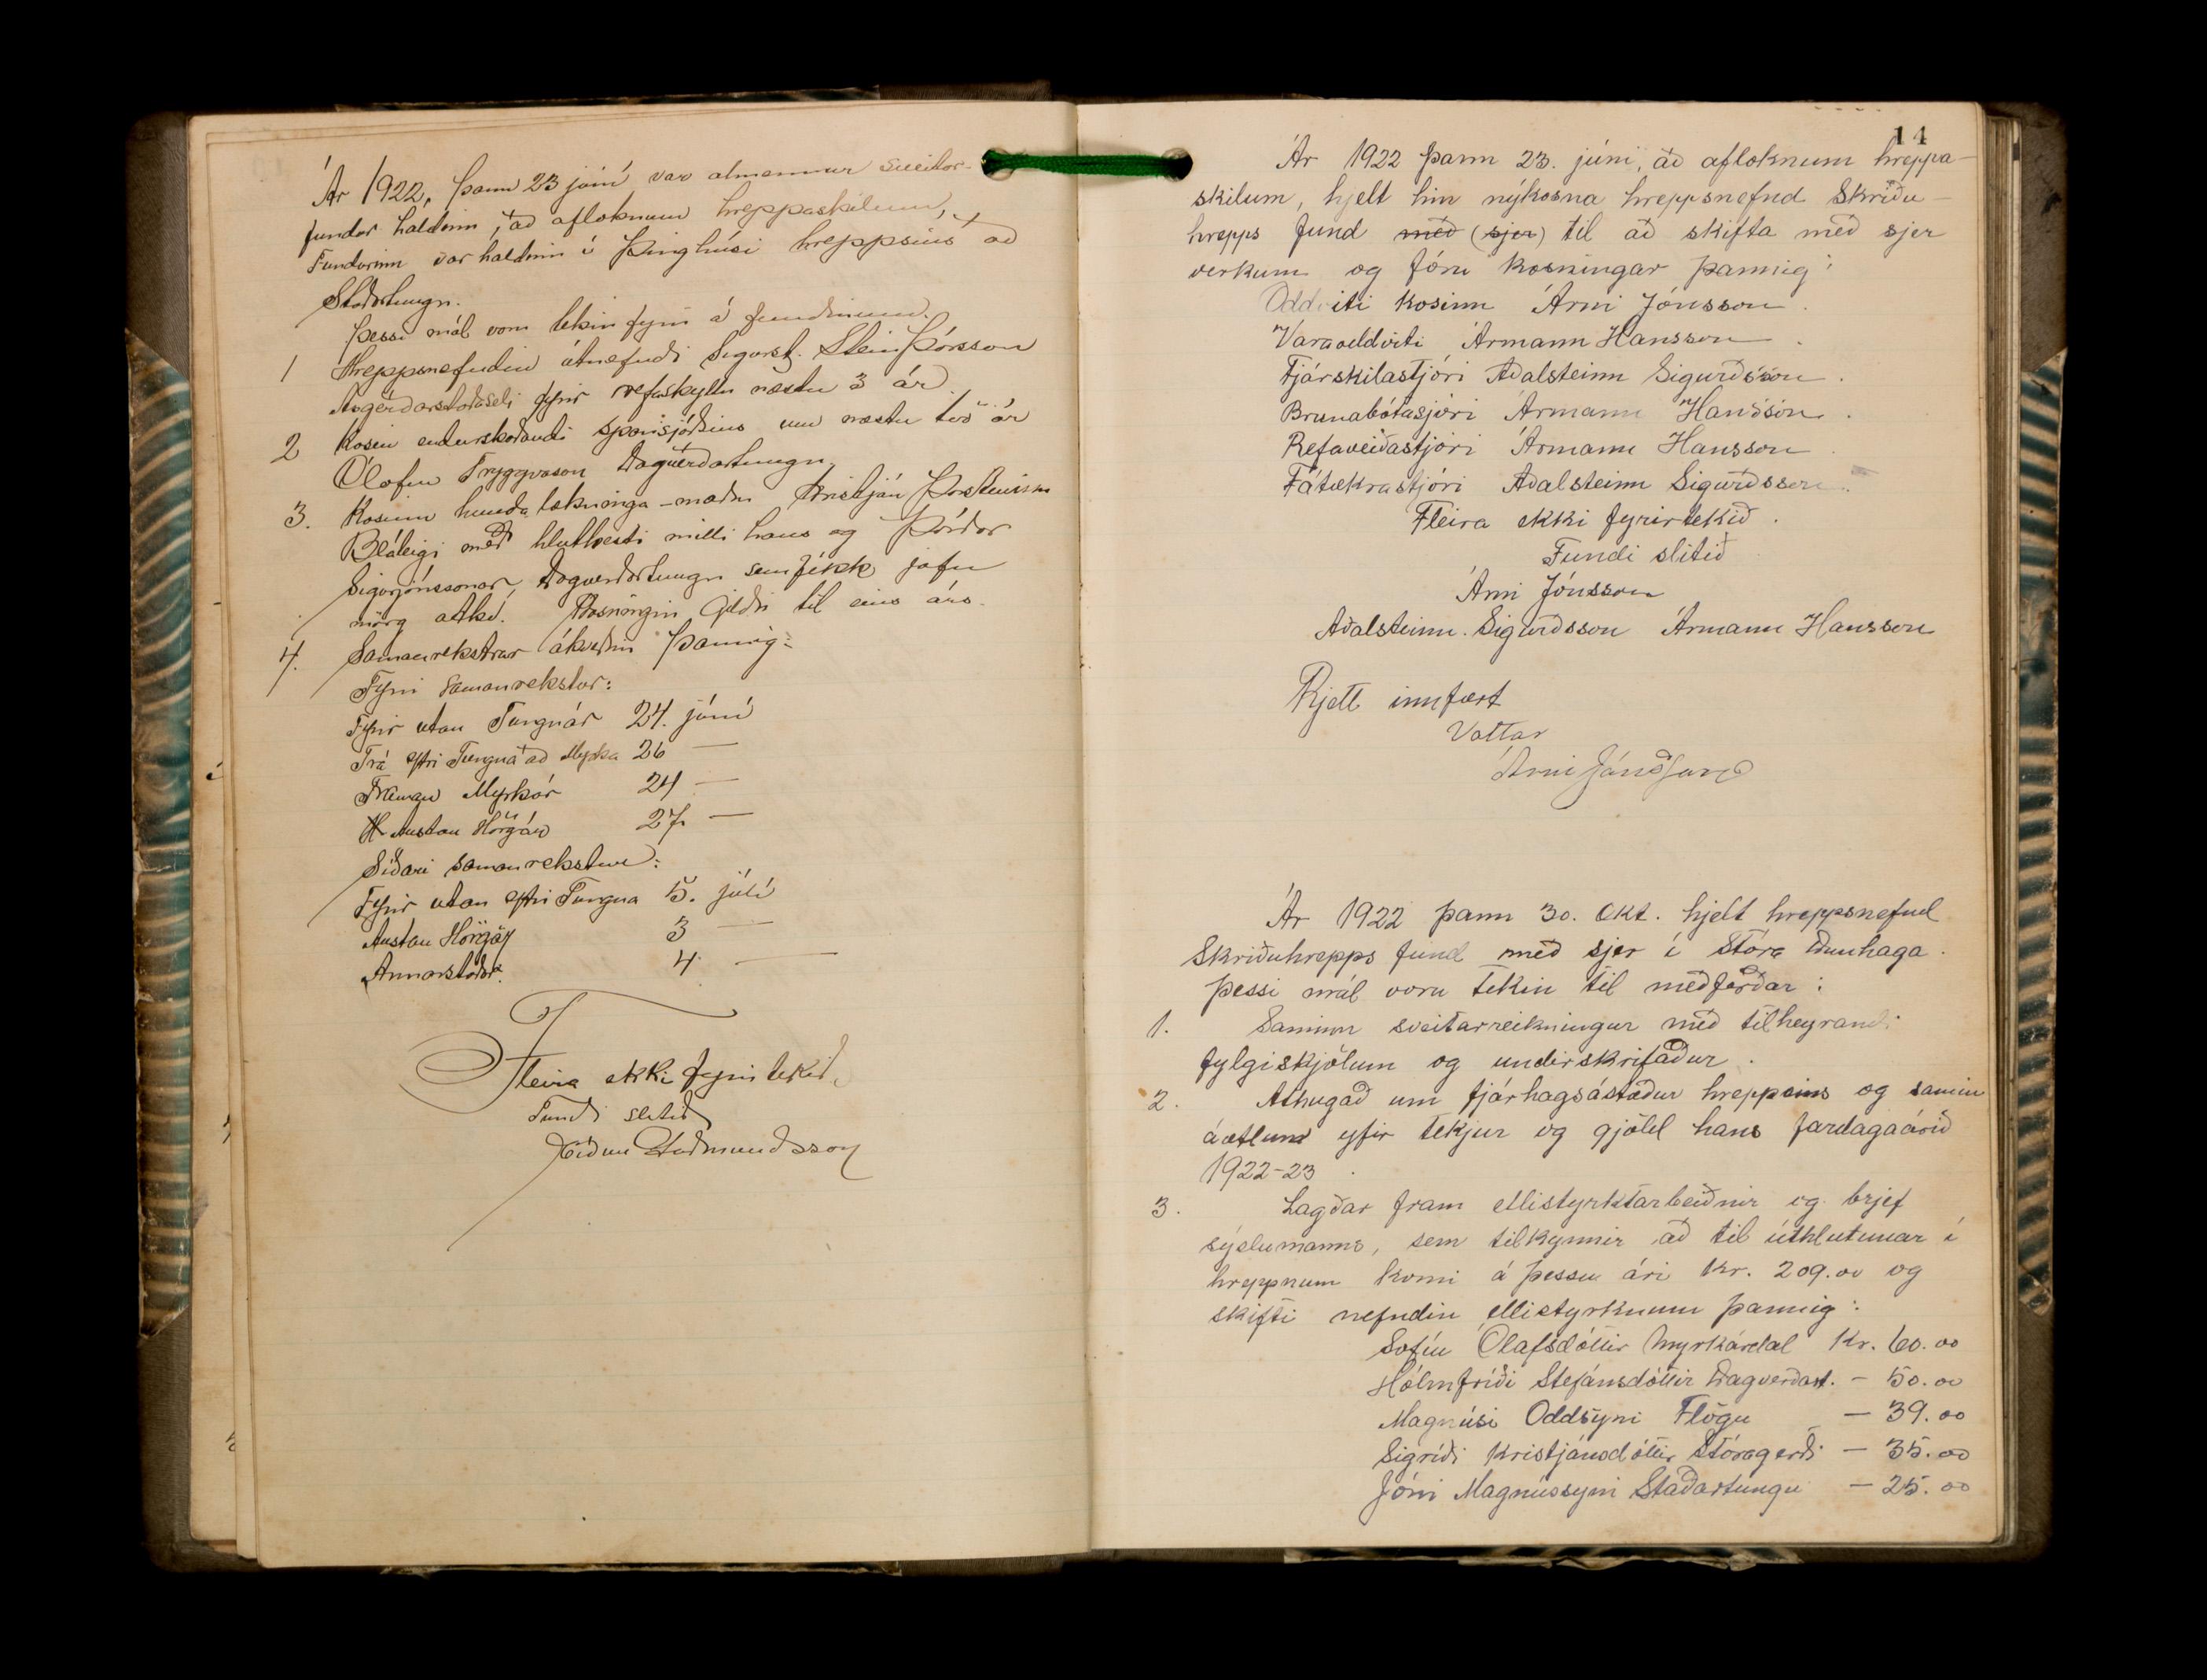 Ár 1922, þann 23 júní var almennur sveitar-
fundur haldinn, að afloknum hreppaskilum,
Fundurinn var haldinn í þinghúsi hreppsins að
Staðartungu.
Þessi mál voru tekin fyrir á fundinum.
1 Hreppsnefndin útnefndi Sigurst. Steinþórsson
fyrir refaskyttu næstu 3 ár.
2 Kosin endurskoðandi sparisjóðsins um næstu tvö ár
Ólafur Tryggvason Dagverðartungu.
3. Kosinn hundalækninga-maður Kristján Þorsteinsson
með hlutkesti milli hans og Þórðar
Sigurjónssonar, Dagverðartungu sem fékk jafn
mörg atkv. Kosningin gildir til eins árs.
4. Samanrekstrar ákveðnir þannig:
Fyrri samanrekstur:
Fyrir utan Tunguár 24. júní
Frá ytri Tunguá að Myrká 26 —
Framan Myrkár 24 —
Austan Hörgár 27 —
Síðari samanrekstur:
Fyrir utan ytri Tungua 5. júlí
Austan Hörgár 3 —
Annarstaðar 4 —
Fleira ekki fyrir tekið.
Fundi slitið
Guðmundsson
14
Ár 1922 þann 23. júní, að afloknum hreppa-
skilum, hjelt hin nýkosna hreppsnefnd Skriðu-
hrepps fund með (sjer) til að skifta með sjer
verkum og fóru kosningar þannig:
Oddviti kosinn Árni Jónsson.
Varaoddviti Ármann Hansson.
Fjárskilastjóri Aðalsteinn Sigurðsson.
Brunabótasjóri Ármann Hansson.
Refaveiðastjóri Ármann Hansson.
Fátækrastjóri Aðalsteinn Sigurðsson.
Fleira ekki fyrirtekið.
Fundi slitið
Árni Jónsson
Aðalsteinn Sigurðsson Ármann Hansson
Rjett innfært
Vottar
Árni Jónsson
Ár 1922 þann 30. okt. hjelt hreppsnefnd
Skriðuhrepps fund með sjer í Stóra Dunhaga.
Þessi mál voru tekin til meðferðar:
1. Saminn sveitarreikningur með tilheyrandi
fylgiskjölum og undirskrifaður.
2. Athugað um fjárhagsástæður hreppsins og samin
áætlun yfir tekjur og gjöld hans fardagaárið
1922-23.
3. Lagðar fram ellistyrktarbeiðnir og brjef
sýslumanns, sem tilkynnir að til úthlutunar í
hreppnum komi á þessu ári kr. 209.00 og
skifti nefndin ellistyrknum þannig:
Sofíu Ólafsdóttir Myrkárdal Kr. 60.00
Hólmfríði Stefánsdóttir Dagverðart. - 50.00
Magnúsi Oddsyni Flögu — 39.00
Sigríði Kristjánsdóttir Stóragerði — 35.00
Jóni Magnússyni Staðartungu — 25.00